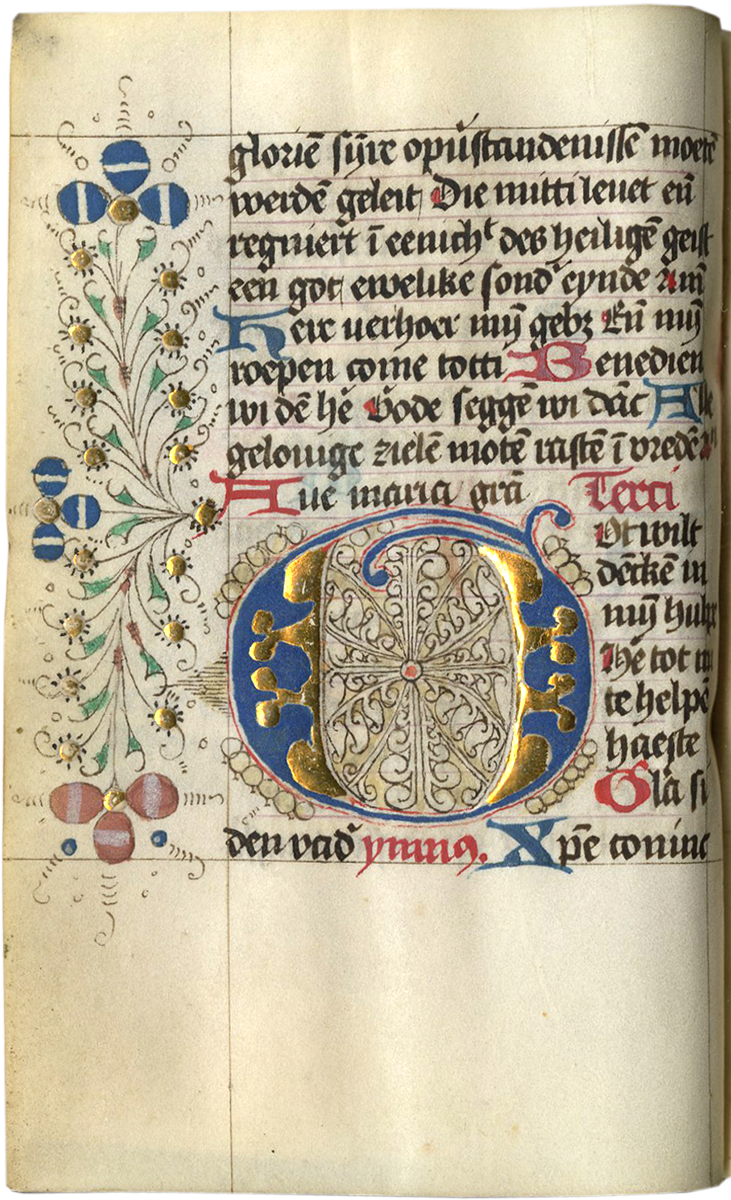 gloriē sijre opūstandenissē moetē
werdē geleit Die mitti leuet eñ
regniert ī eenichᵗ des heiligē geist
eeñ got ewelike sondʾ eynde Amē
Heir uerhoer mijn gebʒ Eñ mijn
roepen come totti Benedien
wi dē hē Gode seggē wi dāc Alle
gelouige zielē motē rastē ī vredē
Aue maria grā Terci
Ot wilt
dēckē in
mijn hulpe
Hē tot
te helpē
haeste
Glā si
den vadʾ ymnꝰ. Xpē coninc